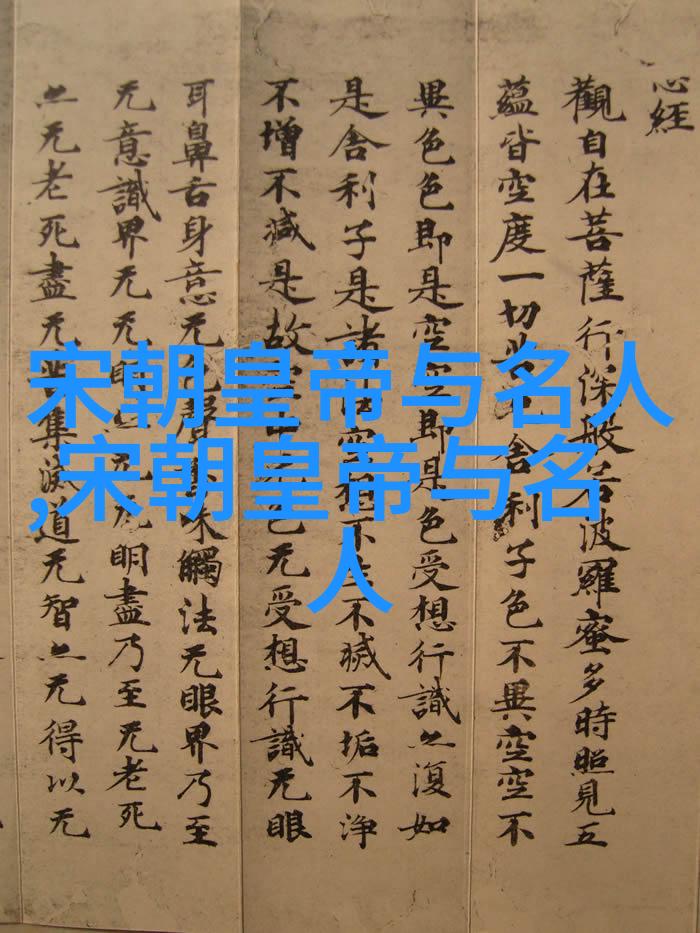 心經
觀自在菩薩行深般若波羅蜜多時照見五
蘊皆空度一切舍利子色不異空空不
異色色即是空空即是色受想行識亦復如
是舍利子是諸空不不滅不垢不淨
不增不減是故色无受想行識无眼
耳鼻舌身意无聲味觸法无眼界乃至
无意識界无无明无明盡乃至无老死
亦无老死盡无集滅道无智亦无得以无
宋朝皇帝与名人
,宋朝皇帝与名
人